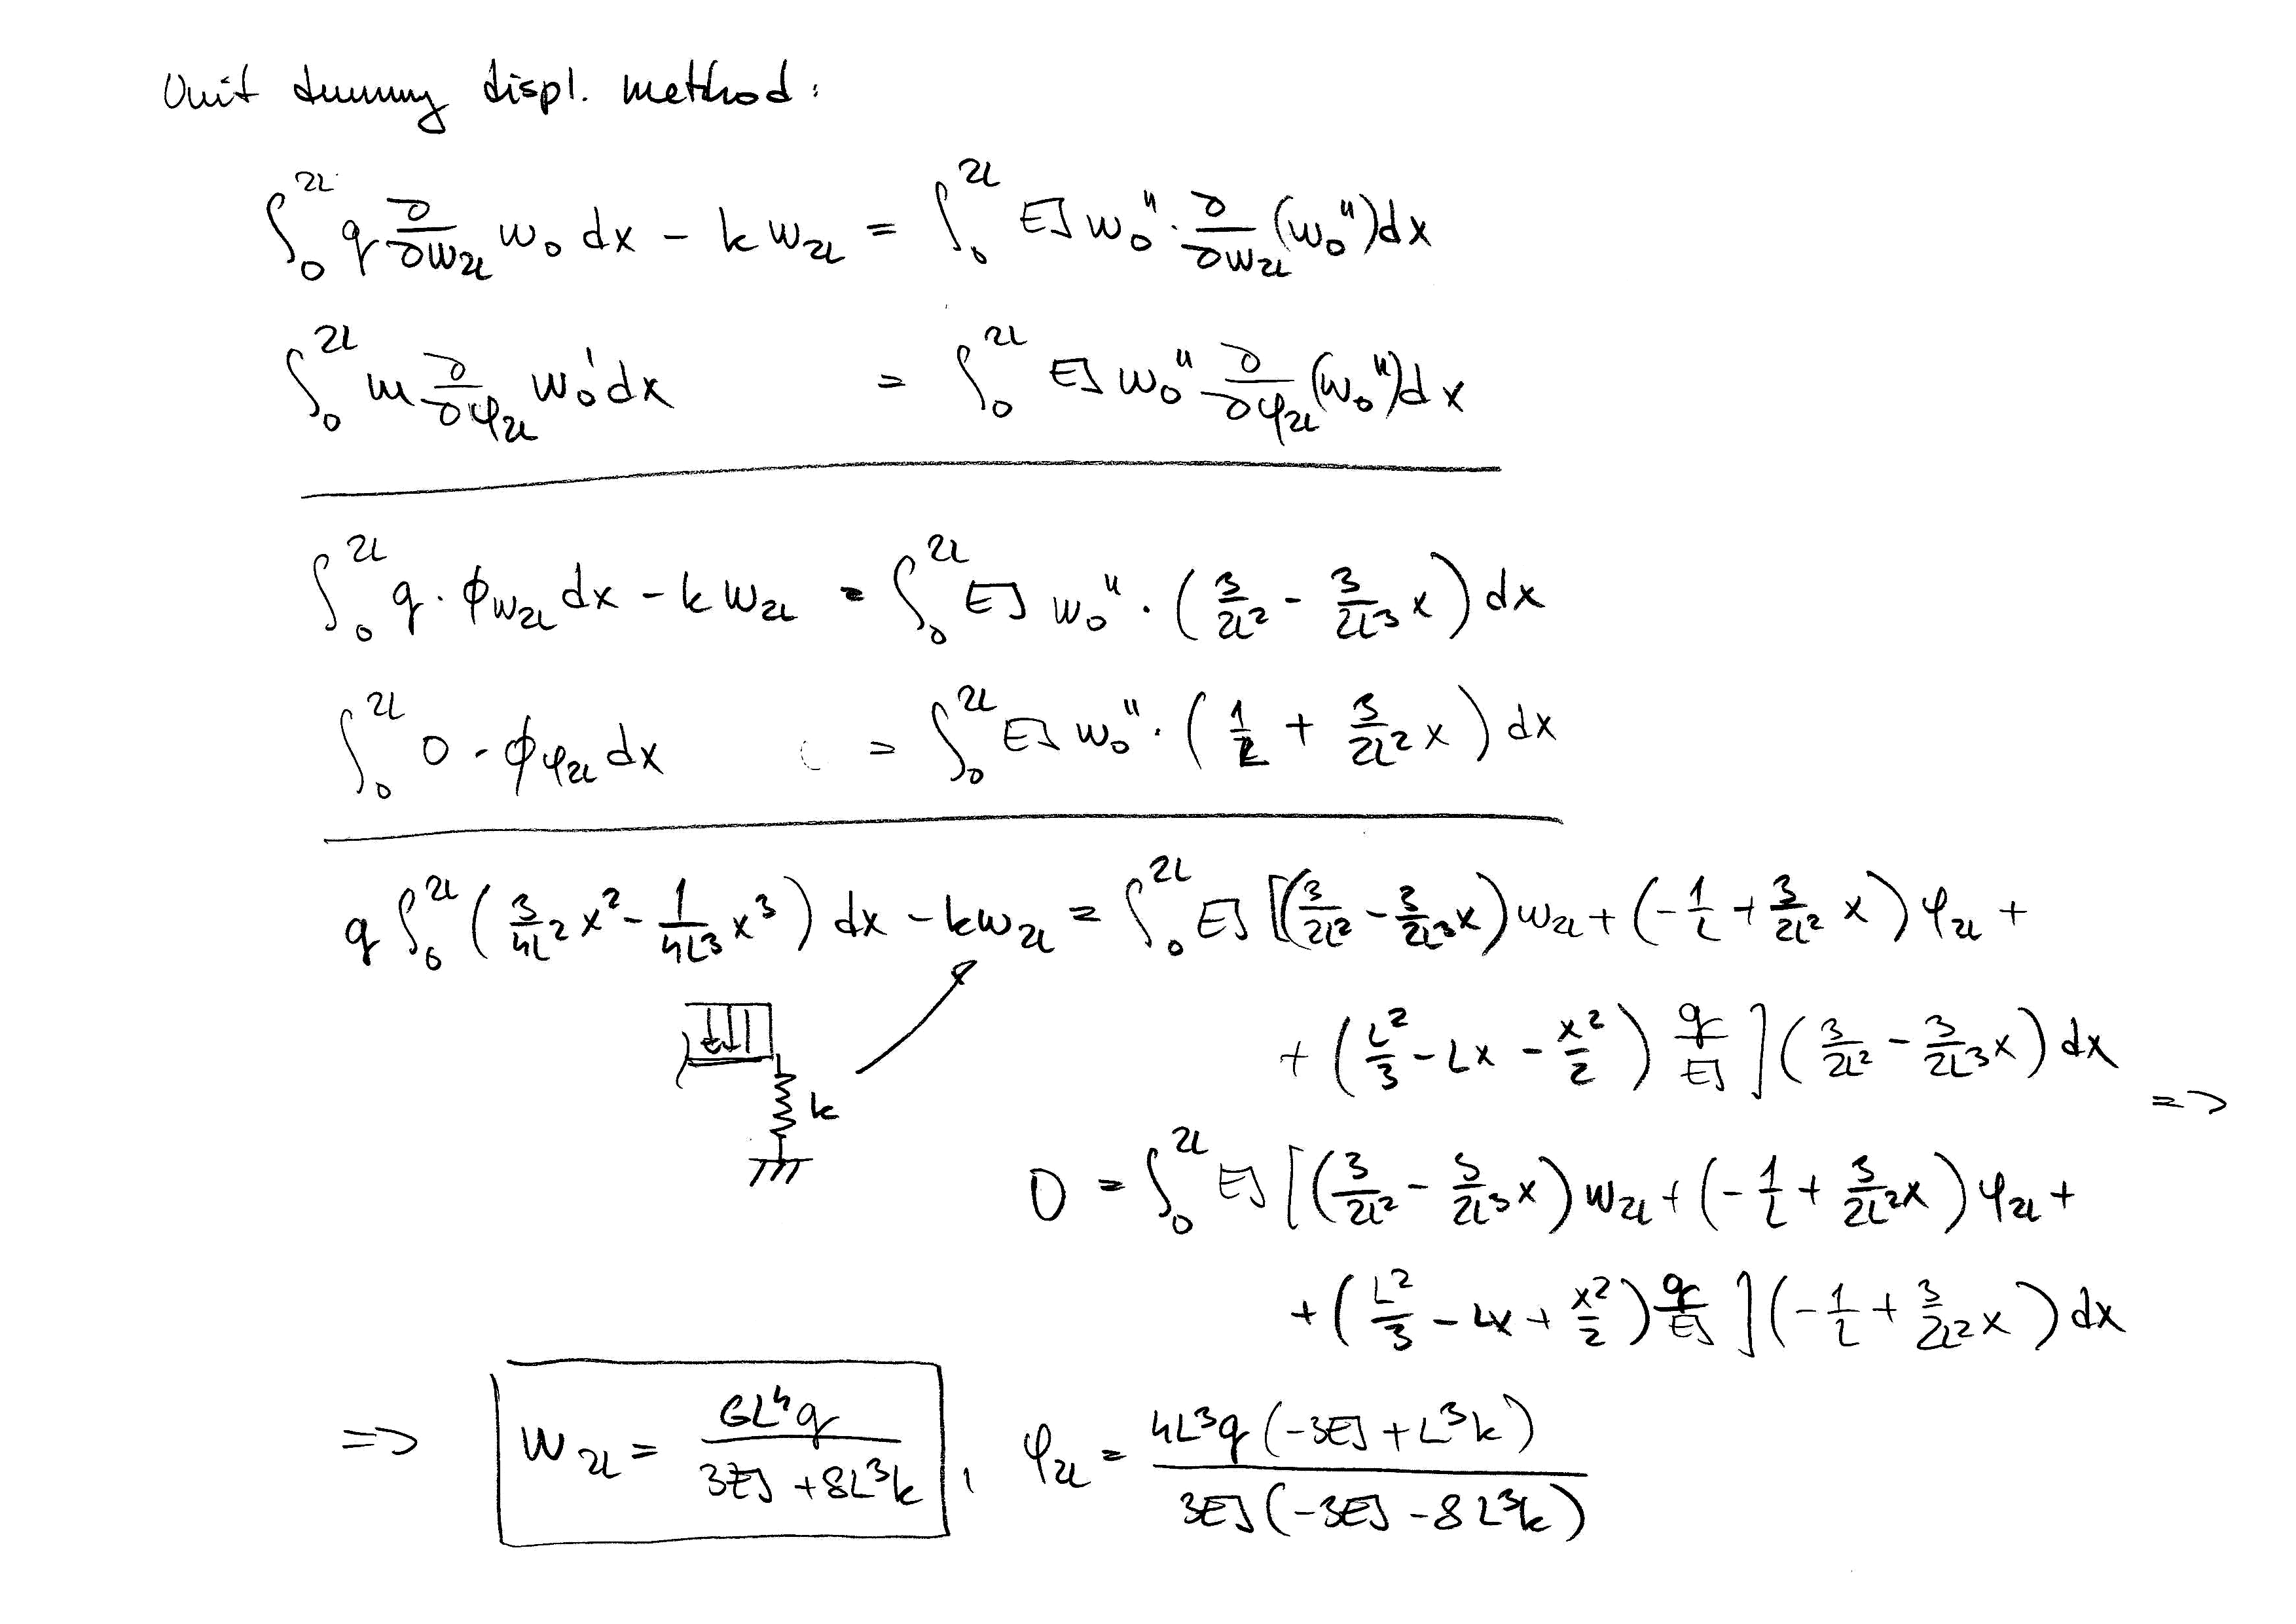 Unit dummy displ. method:
∫₀^{2L} q ∂/∂w_{2L} w₀ dx − k w_{2L} = ∫₀^{2L} EJ w₀'' · ∂/∂w_{2L} (w₀'') dx
∫₀^{2L} m ∂/∂φ_{2L} w₀' dx = ∫₀^{2L} EJ w₀'' ∂/∂φ_{2L} (w₀'') dx
∫₀^{2L} q · ϕ_{w_{2L}} dx − k w_{2L} = ∫₀^{2L} EJ w₀'' · (3/2L² − 3/2L³ x) dx
∫₀^{2L} 0 · ϕ_{φ_{2L}} dx = ∫₀^{2L} EJ w₀'' · (1/L + 3/2L² x) dx
q ∫₀^{2L} (3/4L² x² − 1/4L³ x³) dx − k w_{2L} = ∫₀^{2L} EJ [(3/2L² − 3/2L³ x) w_{2L} + (−1/L + 3/2L² x) φ_{2L} +
+ (L²/3 − Lx − x²/2) q/EJ ] (3/2L² − 3/2L³ x) dx
=>
k
0 = ∫₀^{2L} EJ [(3/2L² − 3/2L³ x) w_{2L} + (−1/L + 3/2L² x) φ_{2L} +
+ (L²/3 − Lx + x²/2) q/EJ ] (−1/L + 3/2L² x) dx
=> w_{2L} = 6L⁴q / (3EJ + 8L³k) , φ_{2L} = 4L³q (−3EJ + L³k) / (3EJ (−3EJ − 8L³k))